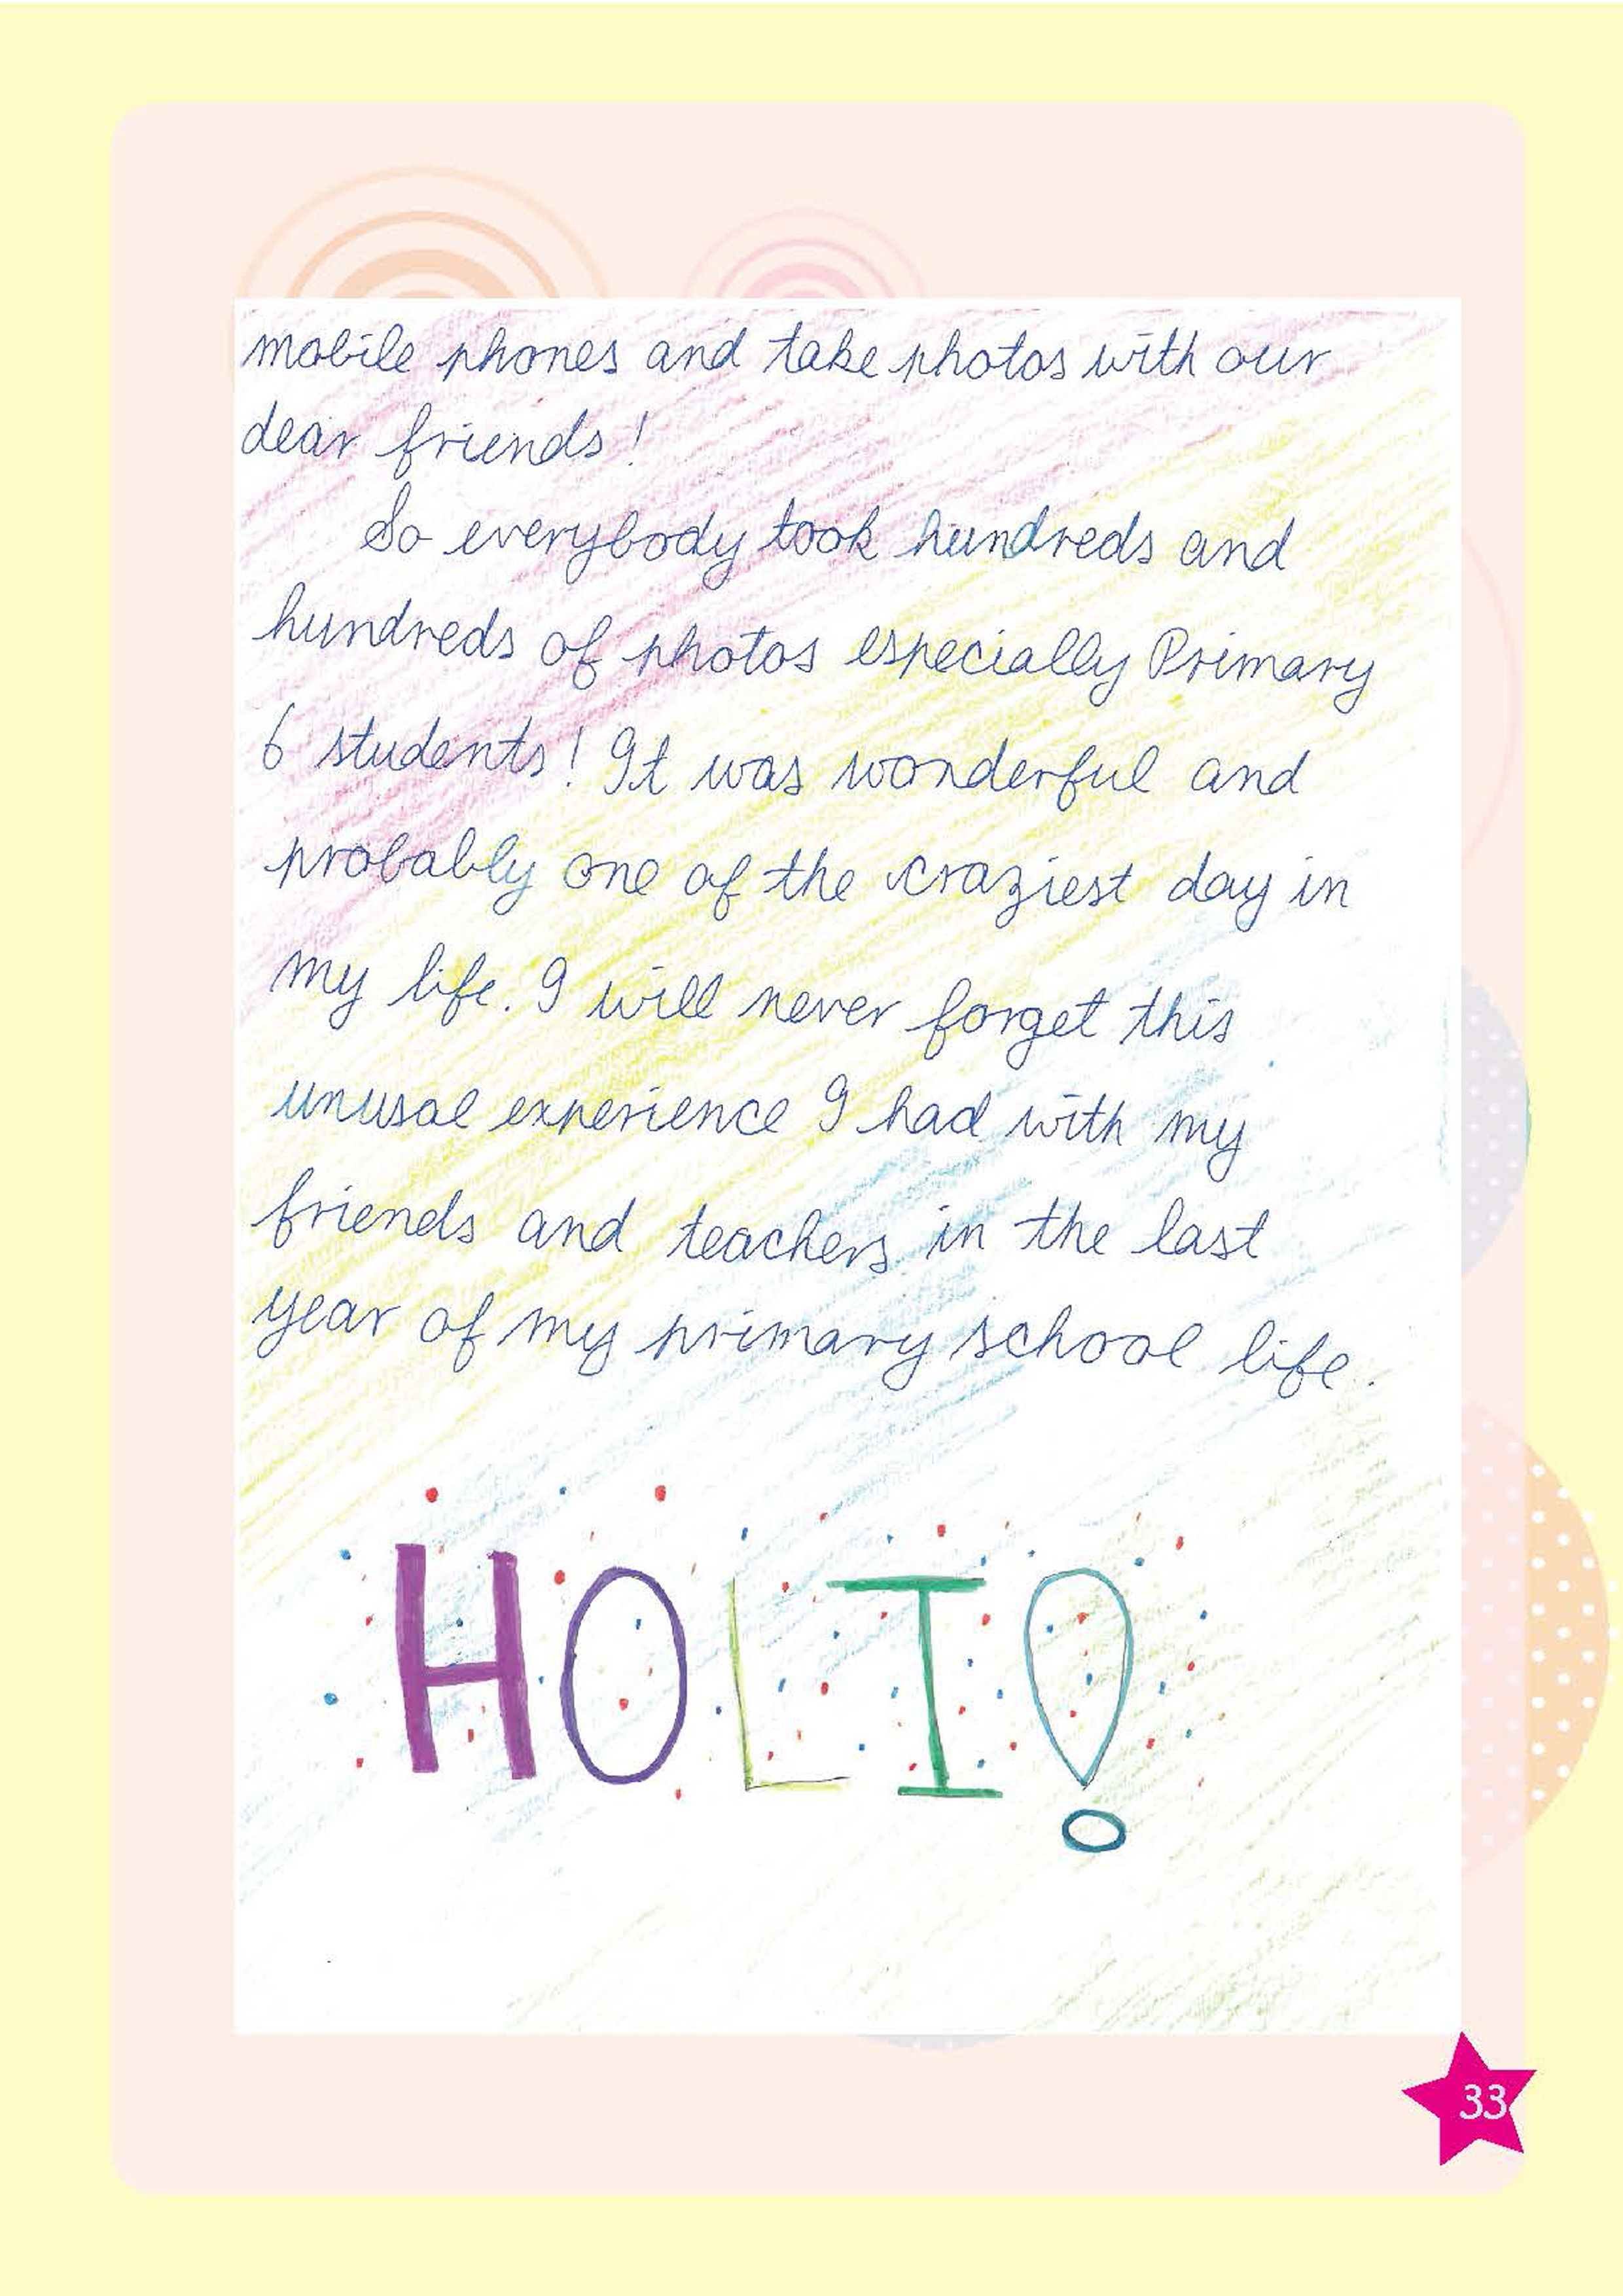 mobile phones and take photos with our
dear friends!
So everybody took hundreds and
hundreds of photos especially Primary
6 students! It was wonderful and
probably one of the craziest day in
my life. I will never forget this
unusal experience I had with my
friends and teachers in the last
year of my primary school life.
HOLI!
33